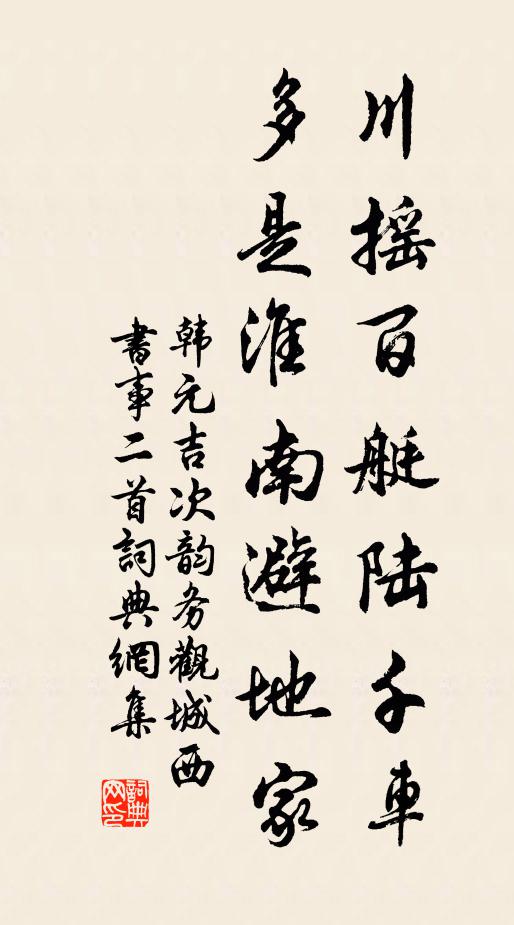 川摇百艇陆千車
多是淮南避地家
韩元吉次韵务觀城西
書事二首詞典網集
詞典网印